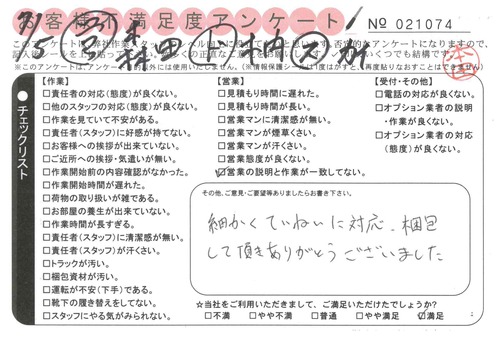 お客様不満足度アンケート! № 021074
□チェックリスト
【作業】
□責任者の対応(態度)が良くない。
□他のスタッフの対応(態度)が良くない。
□作業を見ていて不安がある。
□責任者(スタッフ)に好感が持てない。
□お客様への挨拶が出来ていない。
□ご近所への挨拶・気遣いが無い。
□作業開始前の内容確認がなかった。
□作業開始時間が遅れた。
□荷物の取り扱いが雑である。
□お部屋の養生が出来ていない。
□作業時間が長すぎる。
□責任者(スタッフ)に清潔感が無い。
□責任者(スタッフ)が汗くさい。
□トラックが汚い。
□梱包資材が汚い。
□運転が不安(下手)である。
□靴下の履き替えをしてない。
□スタッフにやる気がみられない。
【営業】
□見積もり時間に遅れた。
□見積もり時間が長い。
□営業マンに清潔感が無い。
□営業マンが煙草くさい。
□営業マンが汗くさい。
□営業態度が良くない。
□営業の説明と作業が一致してない。
【受付・その他】
□電話の対応が良くない。
□オプション業者の説明
・作業が良くない。
□オプション業者の対応
(態度)が良くない。
その他、ご意見・ご要望等ありましたらお書き下さい。
細かくていねいに対応、梱包
して頂きありがとうございました
☆当社をご利用いただきまして、ご満足いただけたでしょうか?
□不満 □やや不満 □普通 □やや満足 ☑満足